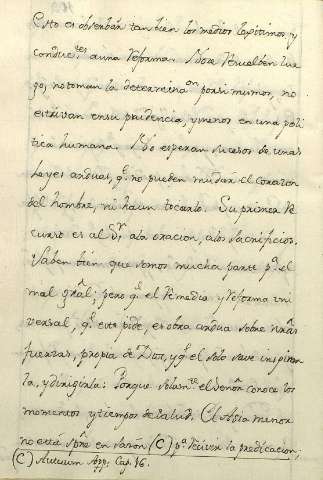 esto es observàn tambien los medios legitimos, y
conduc.tes a una reforma. No se resuelven lue
go, no toman la determina.on por si mismos, no
estrivan en su prudencia, y menos en una poli
tica humana. No esperan sucesos de unas
Leyes arduas, q.e no pueden mudar el corazon
del hombre, ni haun tocarlo. Su primer re
curso es al S.r, a la oracion, a los sacrificios.
Saben bien que somos mucha parte p.a el
mal gràl; pero q.e el remedio y reforma uni
versal, q.e este pide, es obra ardua sobre nr̃as
fuerzas, propia de Dios, y q.e el solo save inspirar
la, y dirigirla: Porque solam.te el señor conoce los
momentos y tiempos de la salud. El Asia menor
no està spr̃e en sazon (C) p.a recivir la predicacion;
(C) Actuum App; Cap. 16.